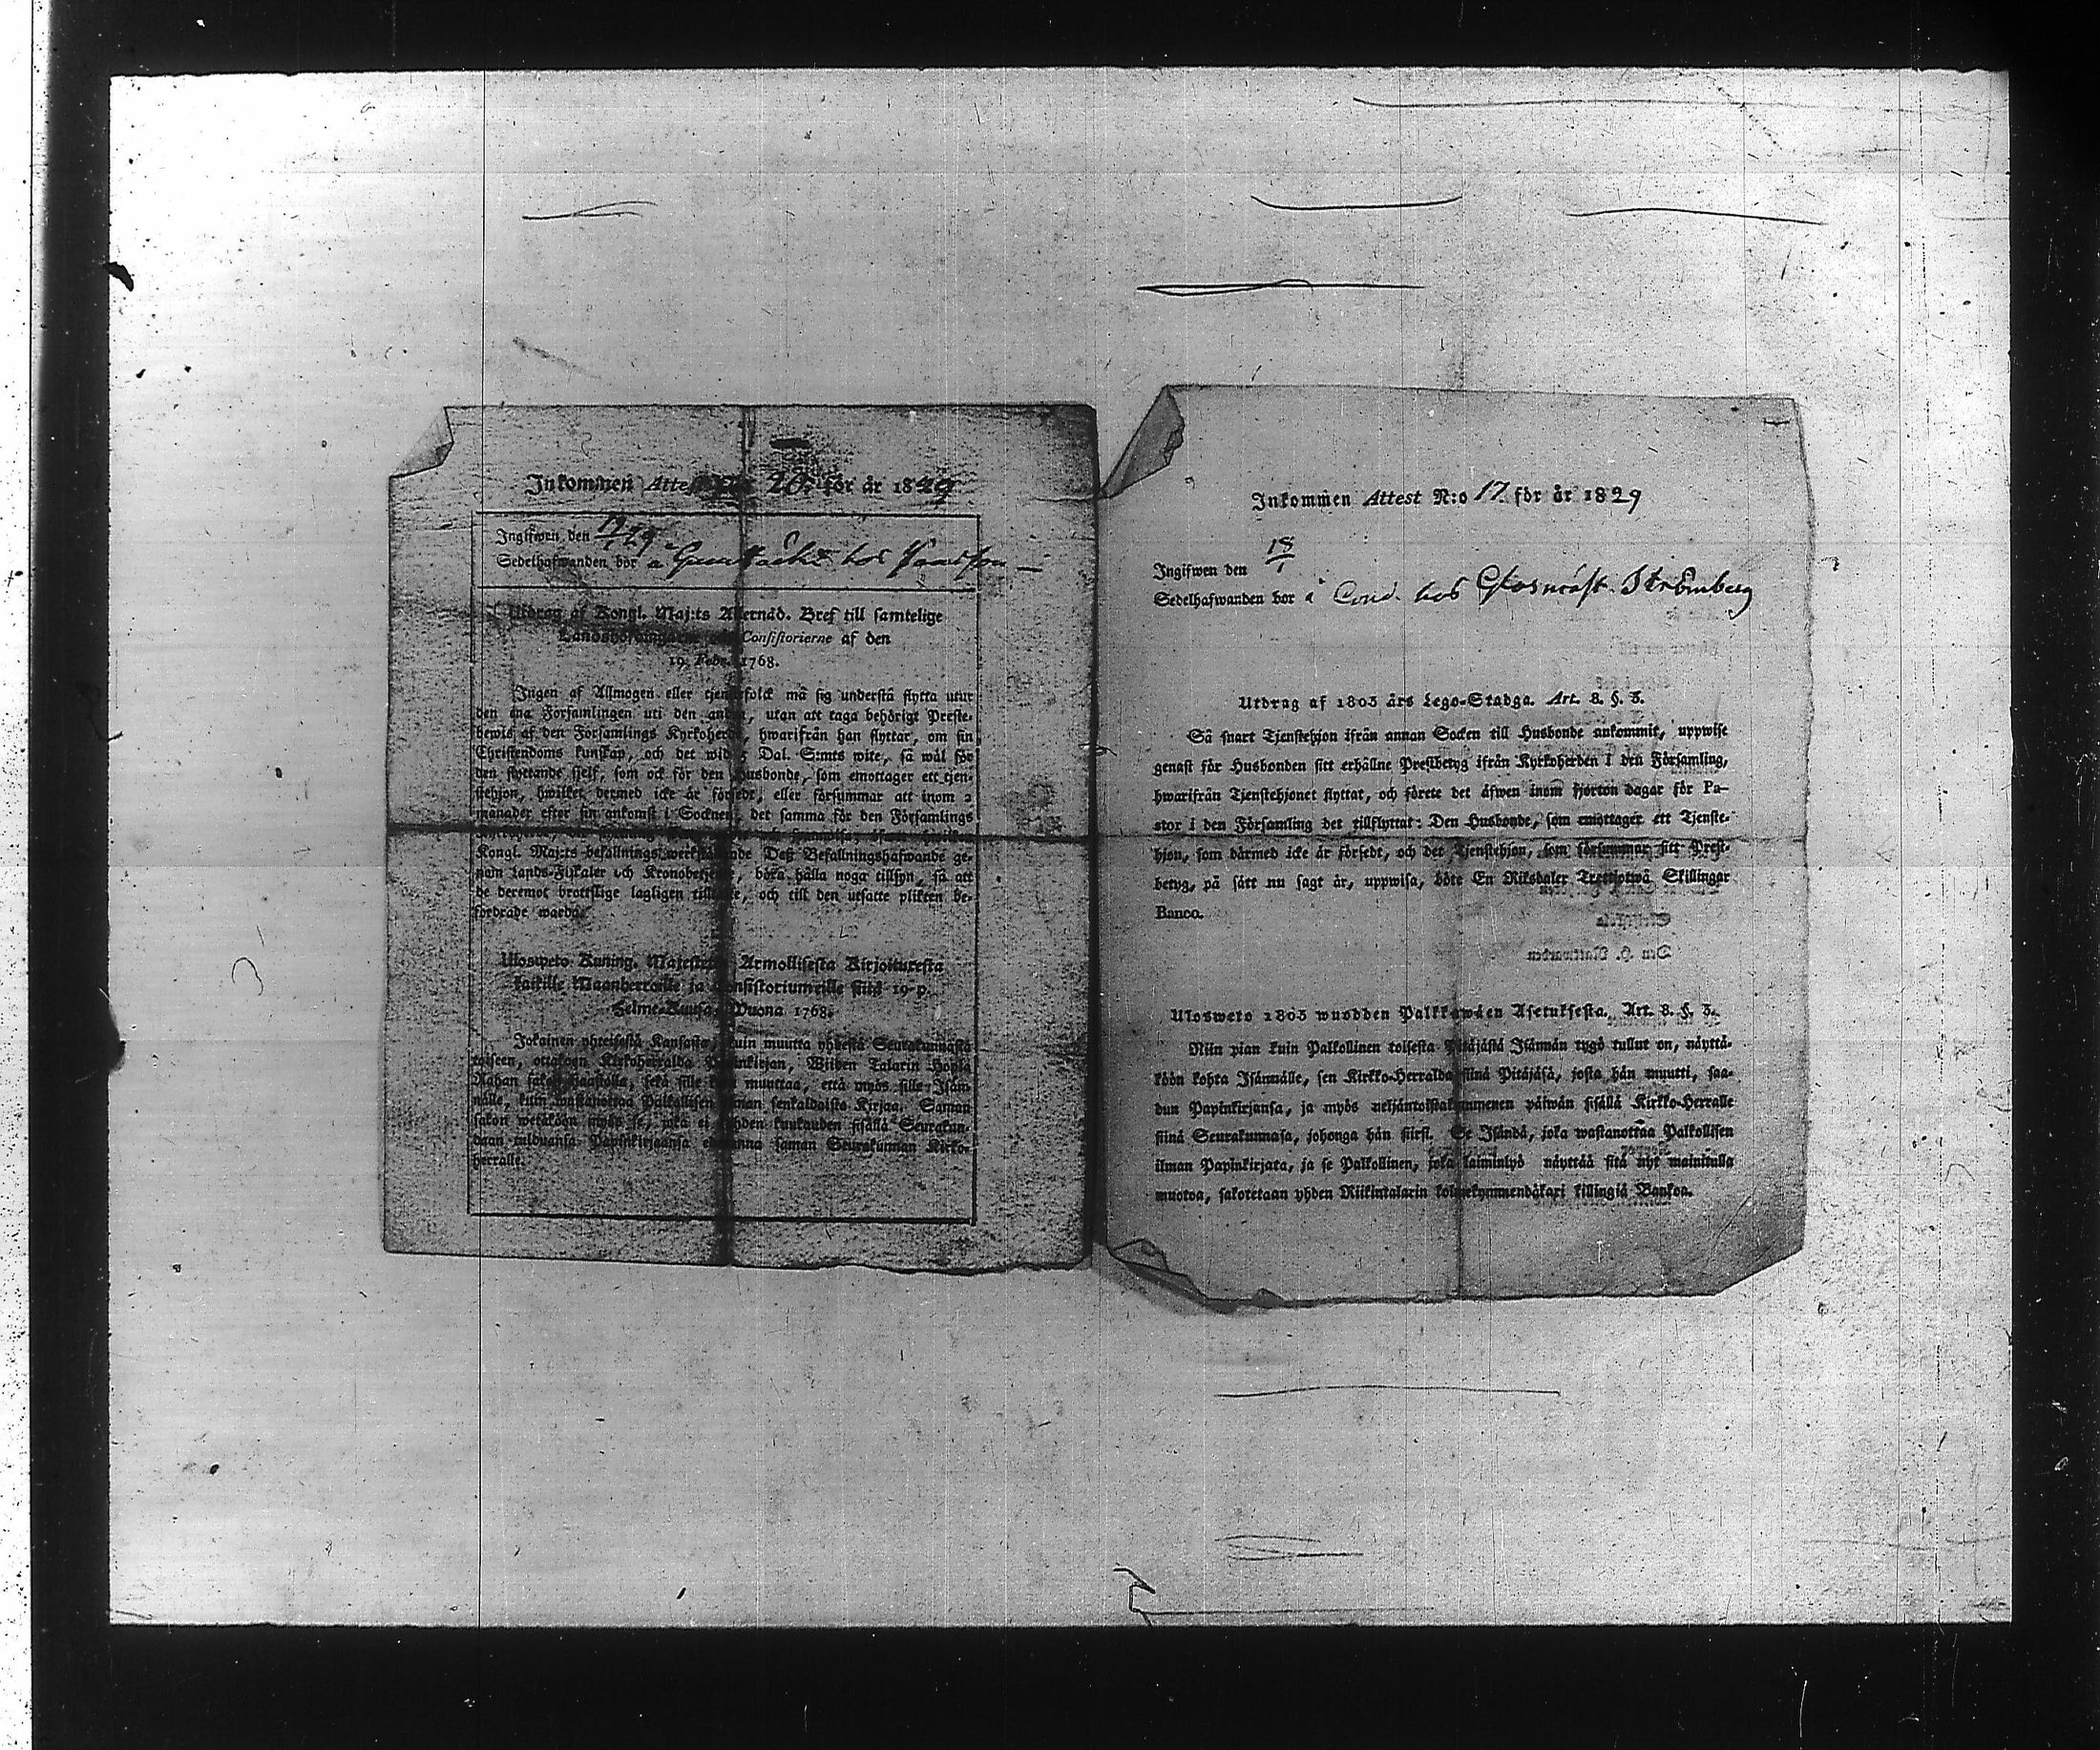 Inkommen Attest 20. för år 1829
Ingifwen den 19/1 29
Sedelhafwanden bor å hos
Utdrag af Kongl. Maj:ts Allernåd. Bref till samtelige
Landshöfdingarne Consistorierne af den
19. Febr. 1768.
Ingen af Allmogen eller tjenstefolck må sig understå flytta utur
den ena Församlingen uti den andra, utan att taga behörigt Preste-
bewis af den Församlings Kyrkoherde, hwarifrån han flyttar, om sin
Christendoms kunskap, och det wid 5 Dal. S:mts wite, så wäl för
den flyttande sjelf, som ock för den Husbonde, som emottager ett tjen-
stehjon, hwilket dermed icke är försedt, eller försummar att inom 2
månader efter sin ankomst i Socknen, det samma för den Församlings
Kongl. Maj:ts befallnings werkställande Deß Befallningshafwande ge-
nom Lands-Fiskaler och Kronobetjente, böra hålla noga tillsyn, så att
de deremot brottslige lagligen tilltalte, och till den utsatte plikten be-
fordrade warda.
Ulosweto Kuning. Majestetin Armollisesta Kirjoituxesta
kaikille Maanherroille ja Consistoriumeille siitä 19 p.
Helme-Kuusa, Wuona 1768.
Jokainen yhteisestä Kansasta, kuin muutta yhdestä Seurakunnasta
toiseen, ottakoon Kirkoherralda Papinkirjan, Wiiden Talarin Hopia
Rahan sakon haastolla, sekä sille kuin muuttaa, että myös sille Isän-
nälle, kuin wastanottaa Palkollisen ilman senkaldaista Kirjaa. Saman
sakon wetäköön myös se, joka ei yhden kuukauden sisällä Seurakun-
daan tulduansa Papinkirjaansa edesanna saman Seurakunnan Kirko-
herralle.
Inkommen Attest N:o 17. för år 1829
Ingifwen den 18/1
Sedelhafwanden bor å Cond. hos Strömberg
Utdrag af 1805 års Lego-Stadga. Art. 8. §. 3.
Så snart Tjenstehjon ifrån annan Socken till Husbonde ankommit, uppwise
genast för Husbonden sitt erhållne Prestbetyg ifrån Kyrkoherden i den Församling,
hwarifrån Tjenstehjonet flyttat, och förete det äfwen inom fjorton dagar för Pa-
stor i den Församling det tillflyttat: Den Husbonde, som emottager ett Tjenste-
hjon, som därmed icke är försedt, och det Tjenstehjon, som försummar sitt Prest-
betyg, på sätt nu sagt är, uppwisa, böte En Riksdaler Trettiotwå Skillingar
Banco.
Ulosweto 1805 wuodden Palkkawäen Asetuksesta. Art. 8. §. 3.
Niin pian kuin Palkollinen toisesta Pitäjästä Isännän tygö tullut on, näyttä-
köön kohta Isännälle, sen Kirkko-Herralda siinä Pitäjäsä, josta hän muutti, saa-
dun Papinkirjansa, ja myös neljäntoistakymmenen päiwän sisällä Kirkko-Herralle
siinä Seurakunnasa, johonga hän siirsi. Se Isändä, joka wastanottaa Palkollisen
ilman Papinkirjata, ja se Palkollinen, joka laiminlyö näyttää sitä nyt mainitulla
muotoa, sakotetaan yhden Riikintalarin kolmekymmendäkaxi killingiä Bankoa.